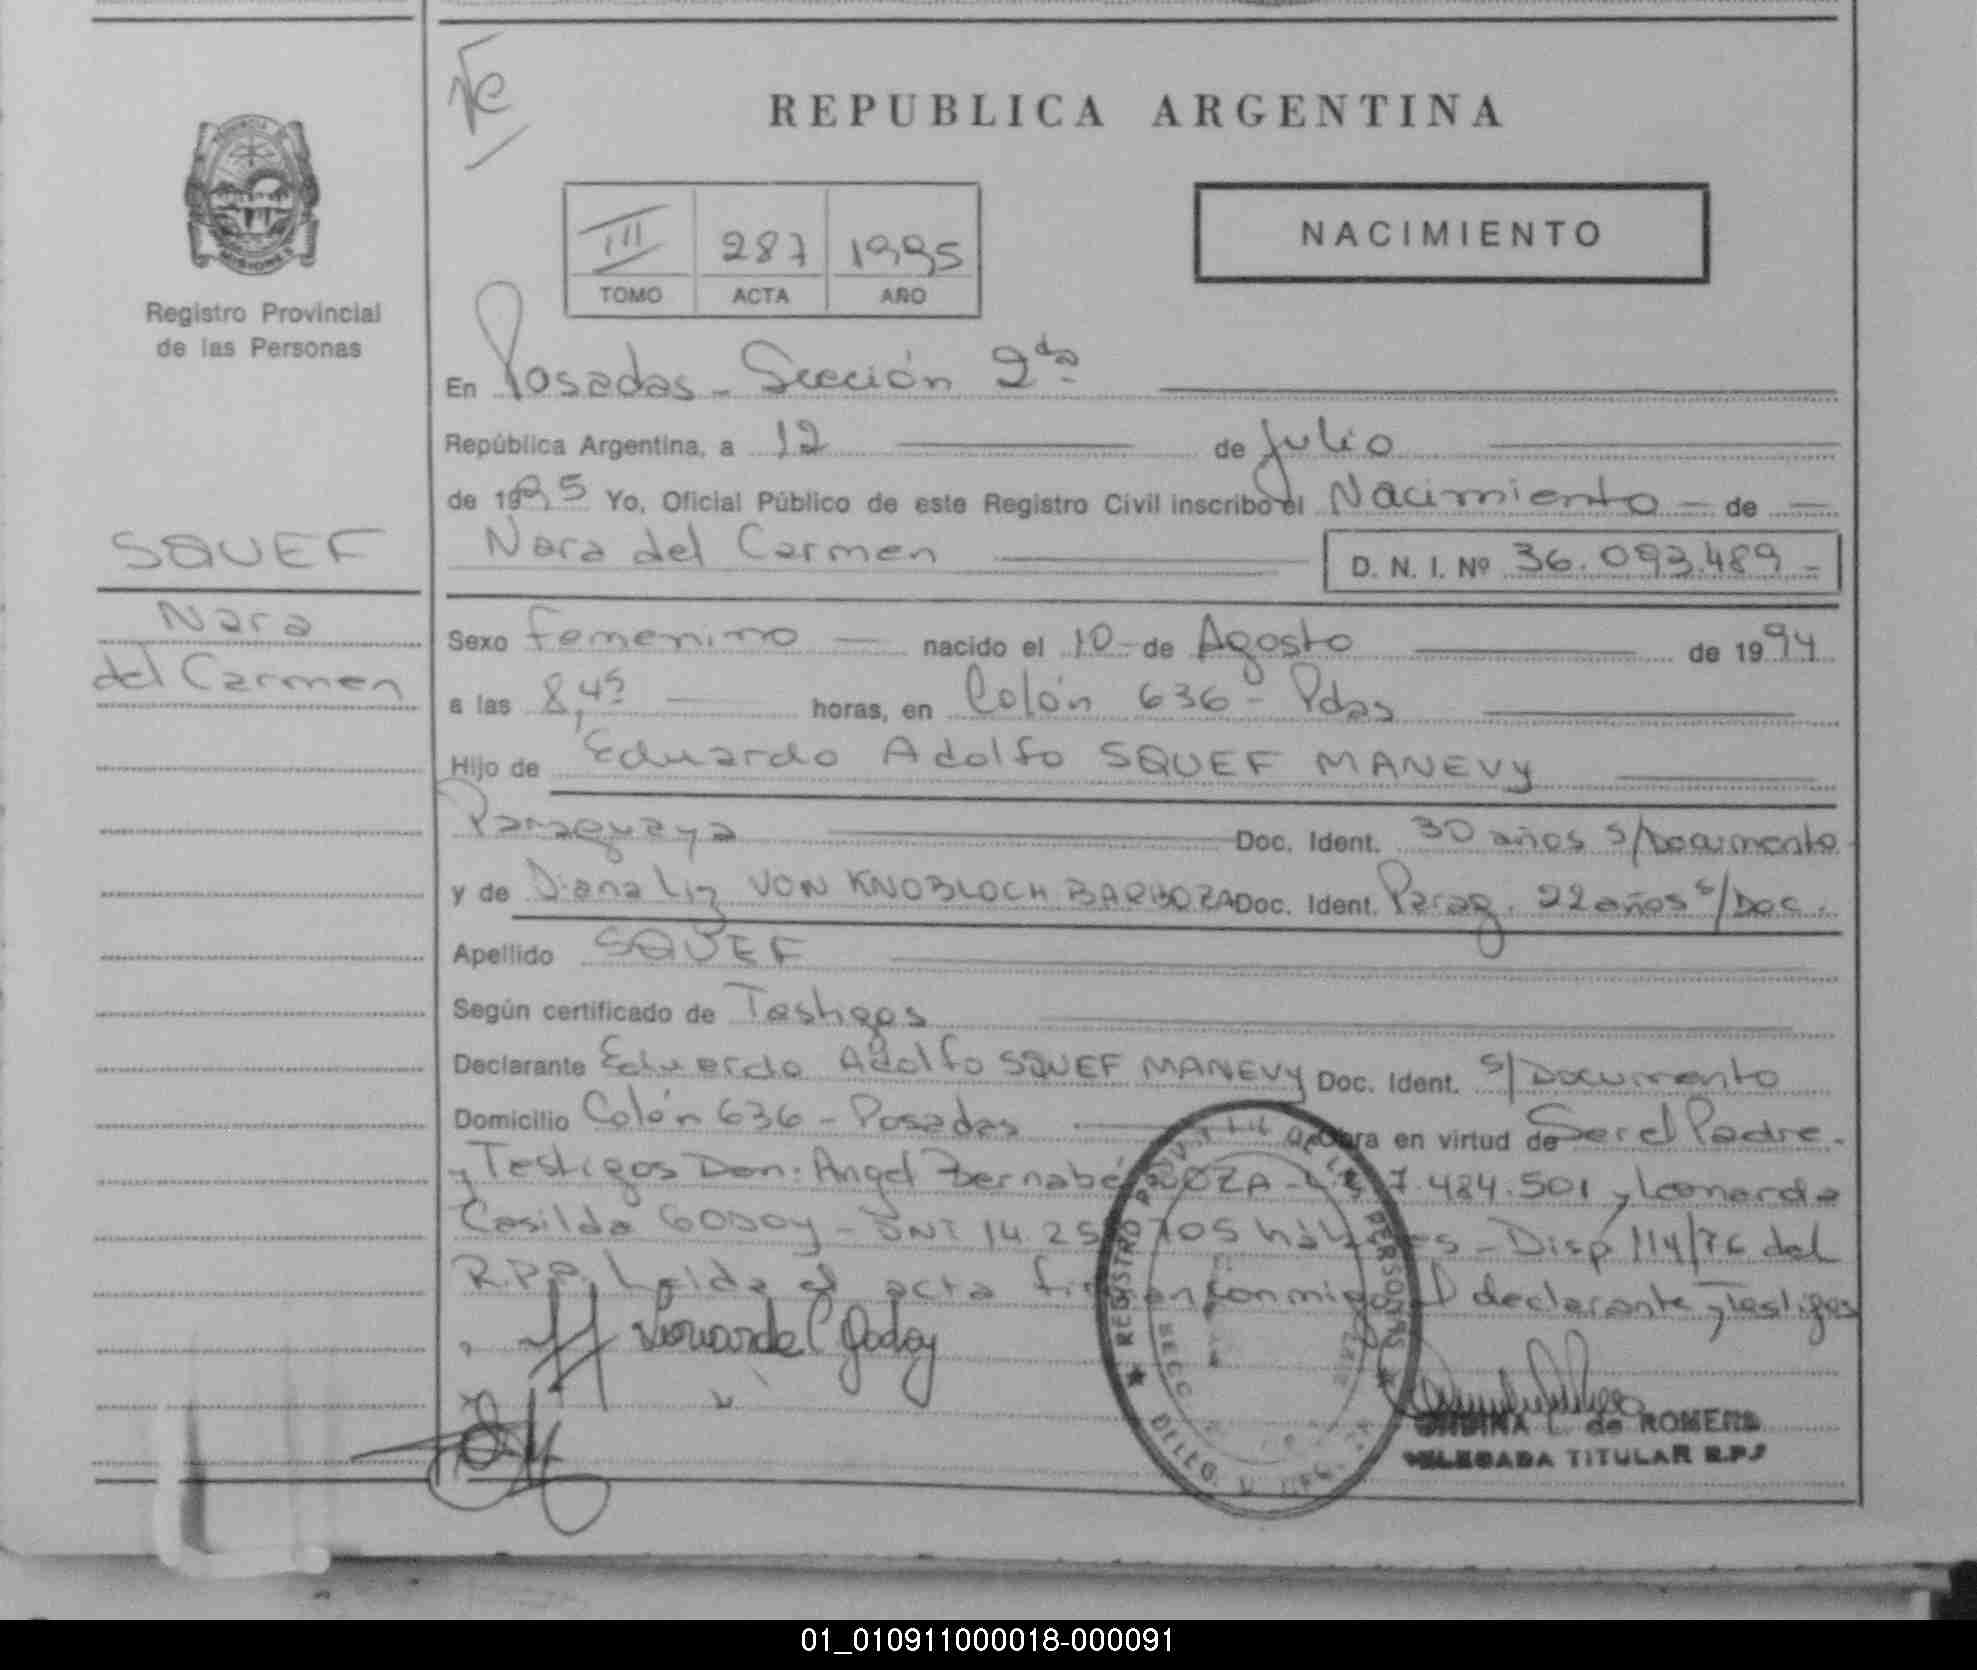 REPUBLICA ARGENTINA
PROVINCIA
MISIONES
Registro Provincial
de las Personas
III 287 1995
TOMO ACTA AÑO
NACIMIENTO
En Posadas - Sección 2da
República Argentina, a 12 de Julio
de 1995 Yo, Oficial Público de este Registro Civil inscribo el Nacimiento - de -
SQUEF
Nara del Carmen D. N. I. Nº 36.093.489 -
Nara
del Carmen
Sexo Femenino - nacido el 10 - de Agosto de 1994
a las 8,45 horas, en Colón 636 - Pdas
Hijo de Eduardo Adolfo SQUEF MANEVY
Paraguaya Doc. Ident. 30 años s/Documento
y de Diana Liz VON KNOBLOCH BARBOZA Doc. Ident. Parag. 22 años s/Doc.
Apellido SQUEF
Según certificado de Testigos
Declarante Eduardo Adolfo SQUEF MANEVY Doc. Ident. s/Documento
Domicilio Colón 636 - Posadas Obra en virtud de Ser el Padre.
y Testigos Don: Angel Bernabé 7.484.501 y Leonarda
Casilda GODOY - DNI 14.25 705 hábiles - Disp 114/76 del
R.P.P. Leida el acta firman conmigo el declarante y testigos
Leonarda C Godoy
REGISTRO PROVINCIAL DE LAS PERSONAS
L. de ROMERO
DELEGADA TITULAR R.P.P
01_010911000018-000091